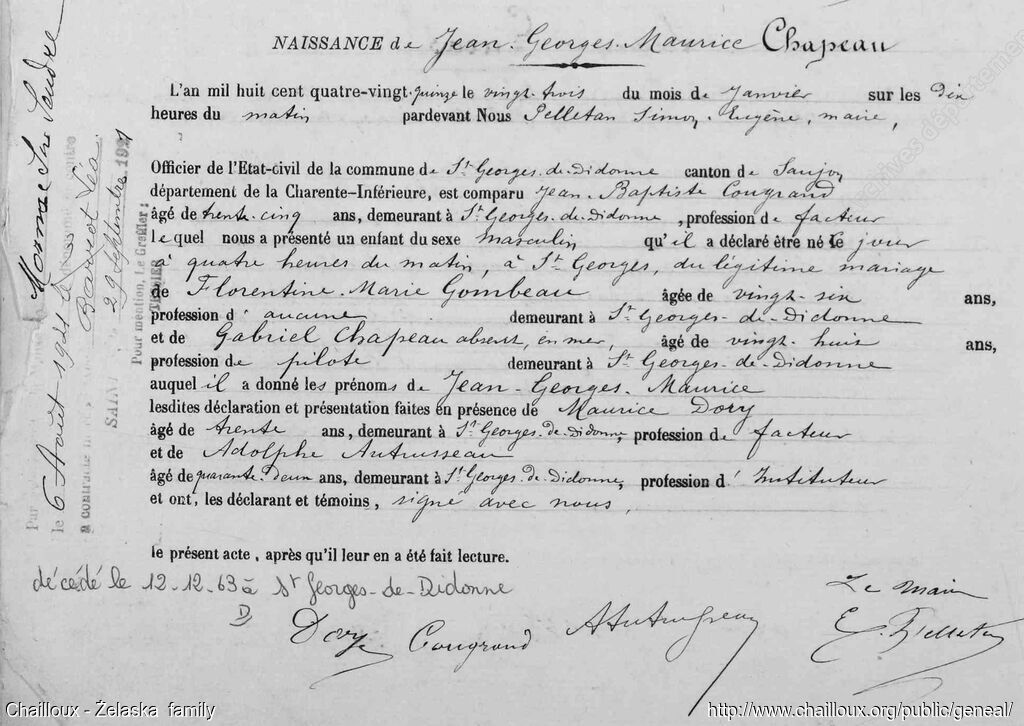 NAISSANCE de Jean-Georges-Maurice Chapeau
L'an mil huit cent quatre-vingt-quinze le vingt trois du mois de Janvier sur les dix
heures du matin pardevant Nous Pelletan Simon-Eugène, maire,
Officier de l'Etat-civil de la commune de St Georges-de-Didonne canton de Saujon
département de la Charente-Inférieure, est comparu Jean-Baptiste Cougrand
âgé de trente-cinq ans, demeurant à St Georges-de-Didonne, profession de facteur
lequel nous a présenté un enfant du sexe masculin qu'il a déclaré être né le jour
à quatre heures du matin, à St Georges, du légitime mariage
de Florentine-Marie Gombeau âgée de vingt-six ans,
profession d'aucune demeurant à St Georges-de-Didonne
et de Gabriel Chapeau absent, en mer, âgé de vingt-huit ans,
profession de pilote demeurant à St Georges-de-Didonne
auquel il a donné les prénoms de Jean-Georges-Maurice
lesdites déclaration et présentation faites en présence de Maurice Dory
âgé de trente ans, demeurant à St Georges-de-Didonne, profession de facteur
et de Adolphe Autrusseau
âgé de quarante-deux ans, demeurant à St Georges-de-Didonne, profession d'Instituteur
et ont, les déclarant et témoins, signé avec nous,
le présent acte, après qu'il leur en a été fait lecture.
décédé le 12-12-63 à St Georges-de-Didonne
Le Maire
Dory Cougrand AAutrusseau E. Pelletan
le 6 Août 1921
a contracté
Baudot Léa
29 Septembre 1921
Pour mention, Le Greffier :
Chailloux - Żelaska family
http://www.chailloux.org/public/geneal/